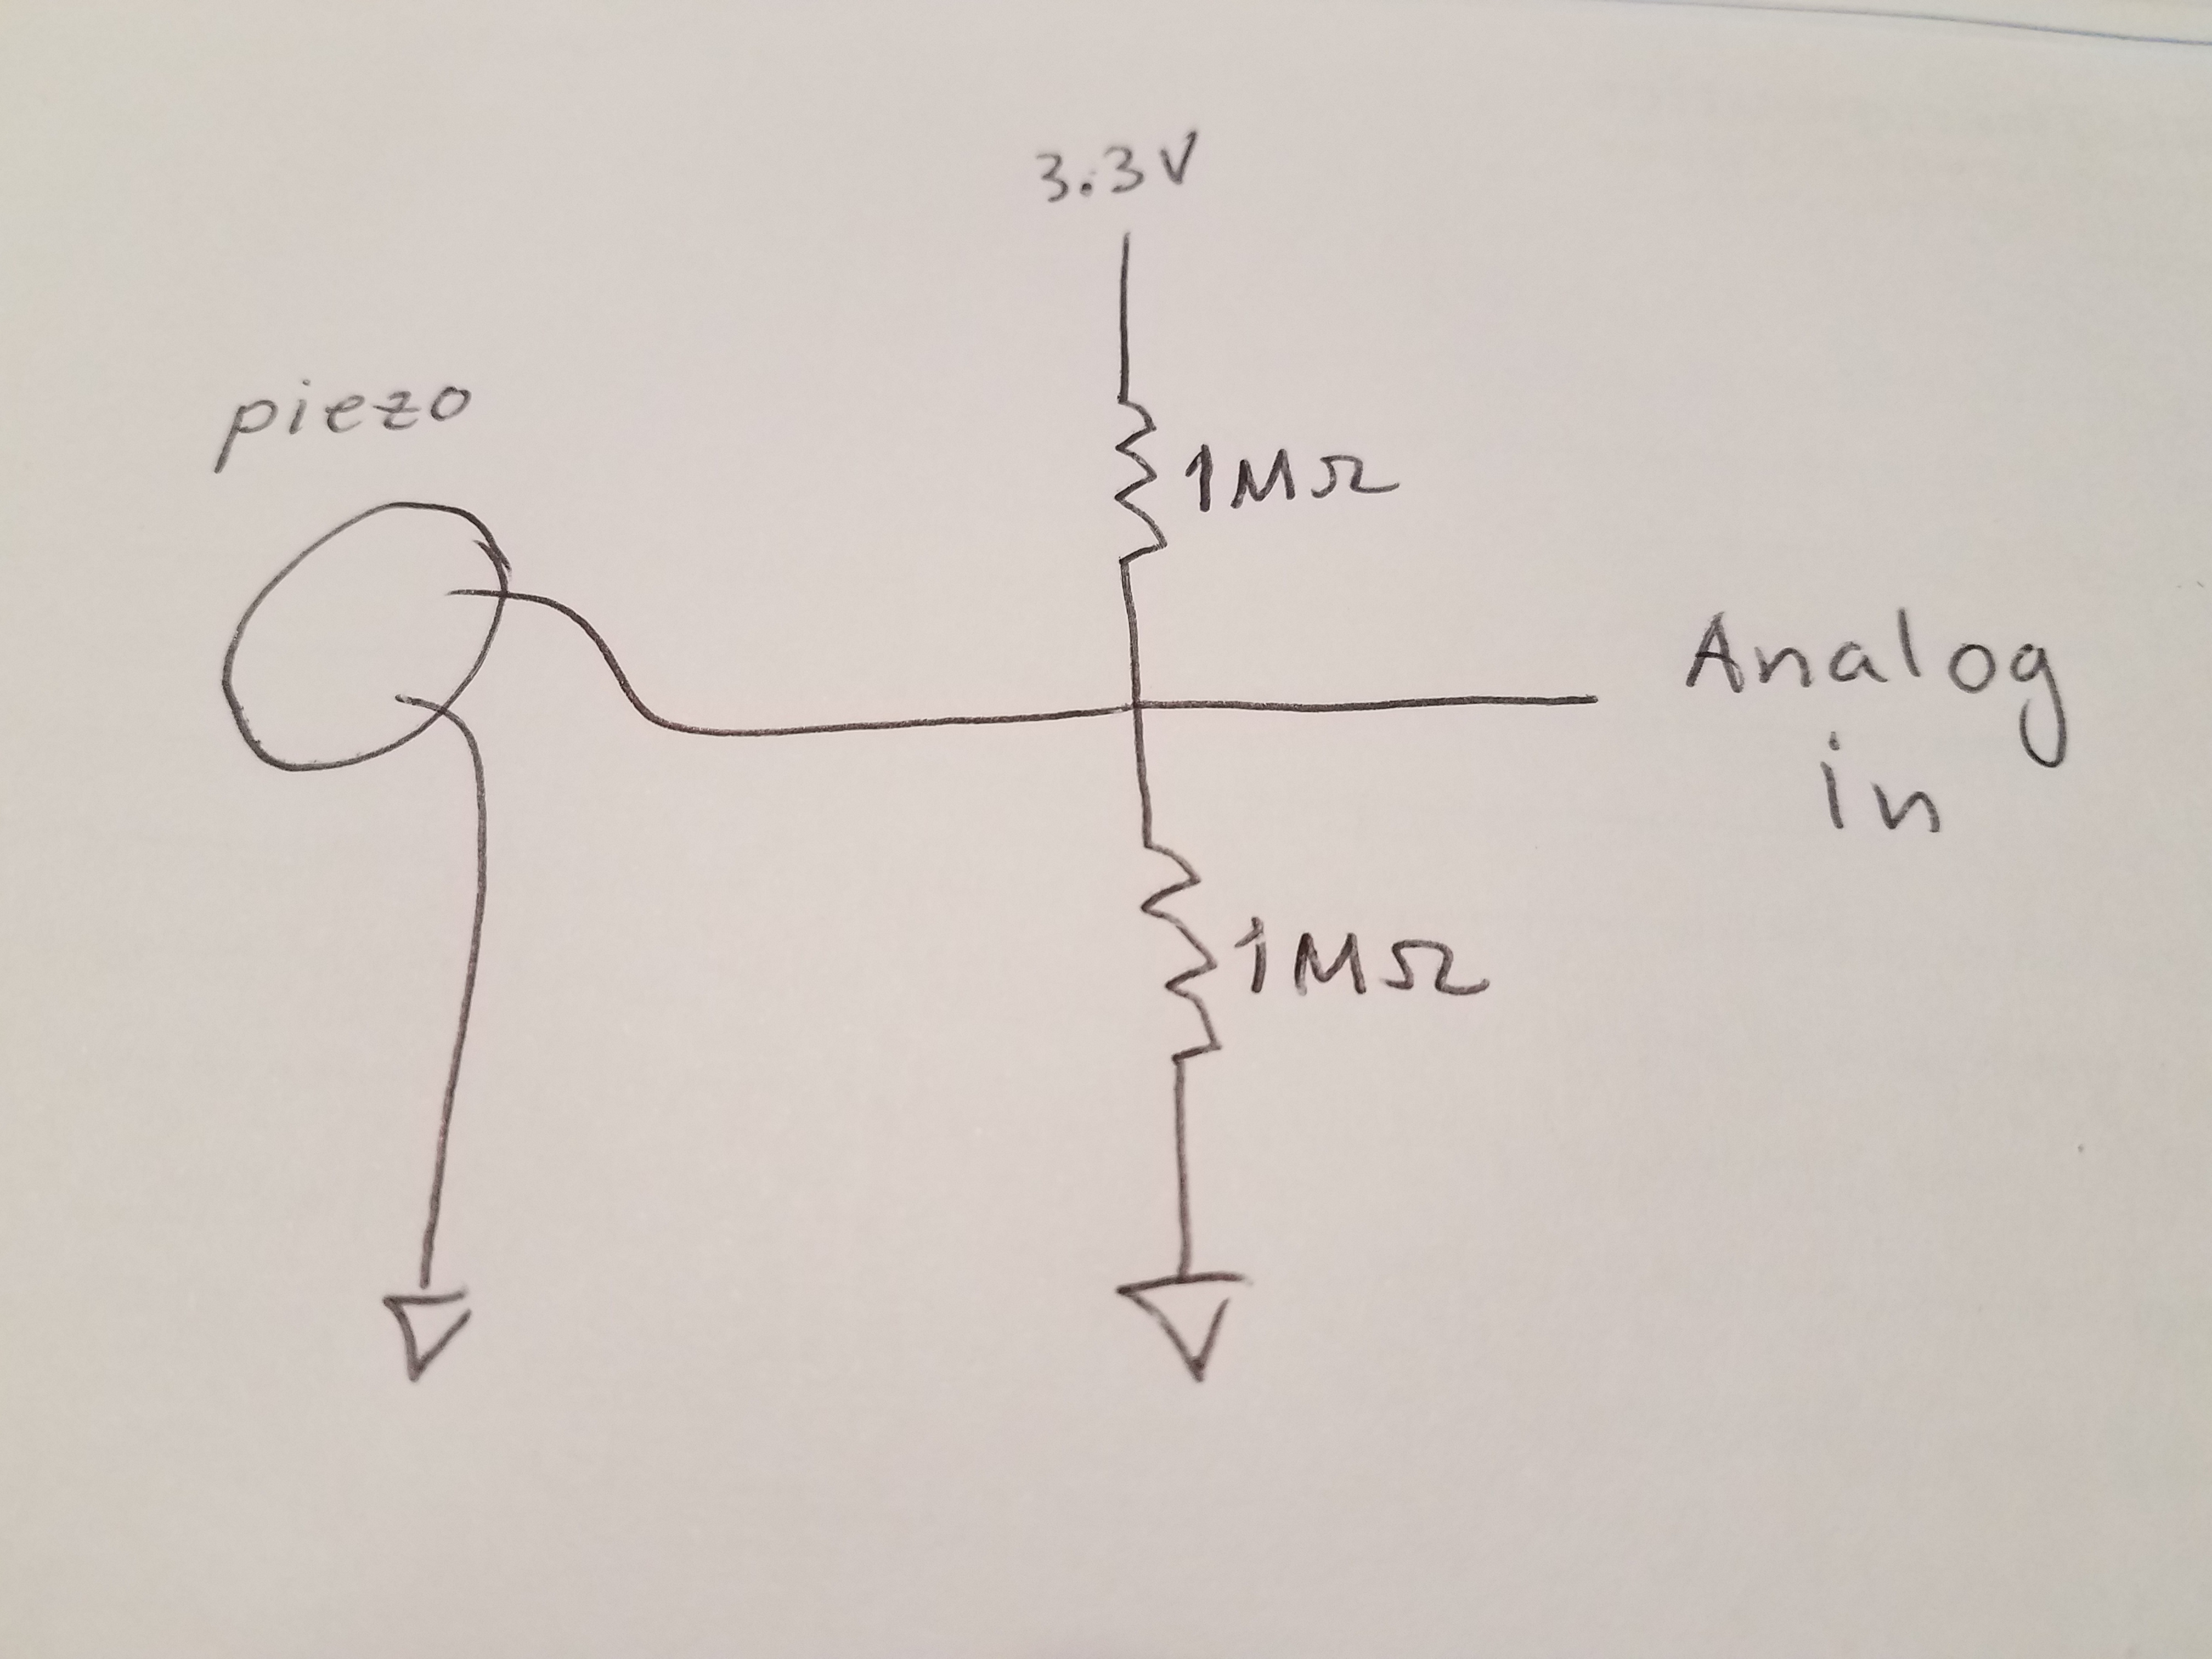 3.3V
piezo
1MΩ
Analog
in
1MΩ